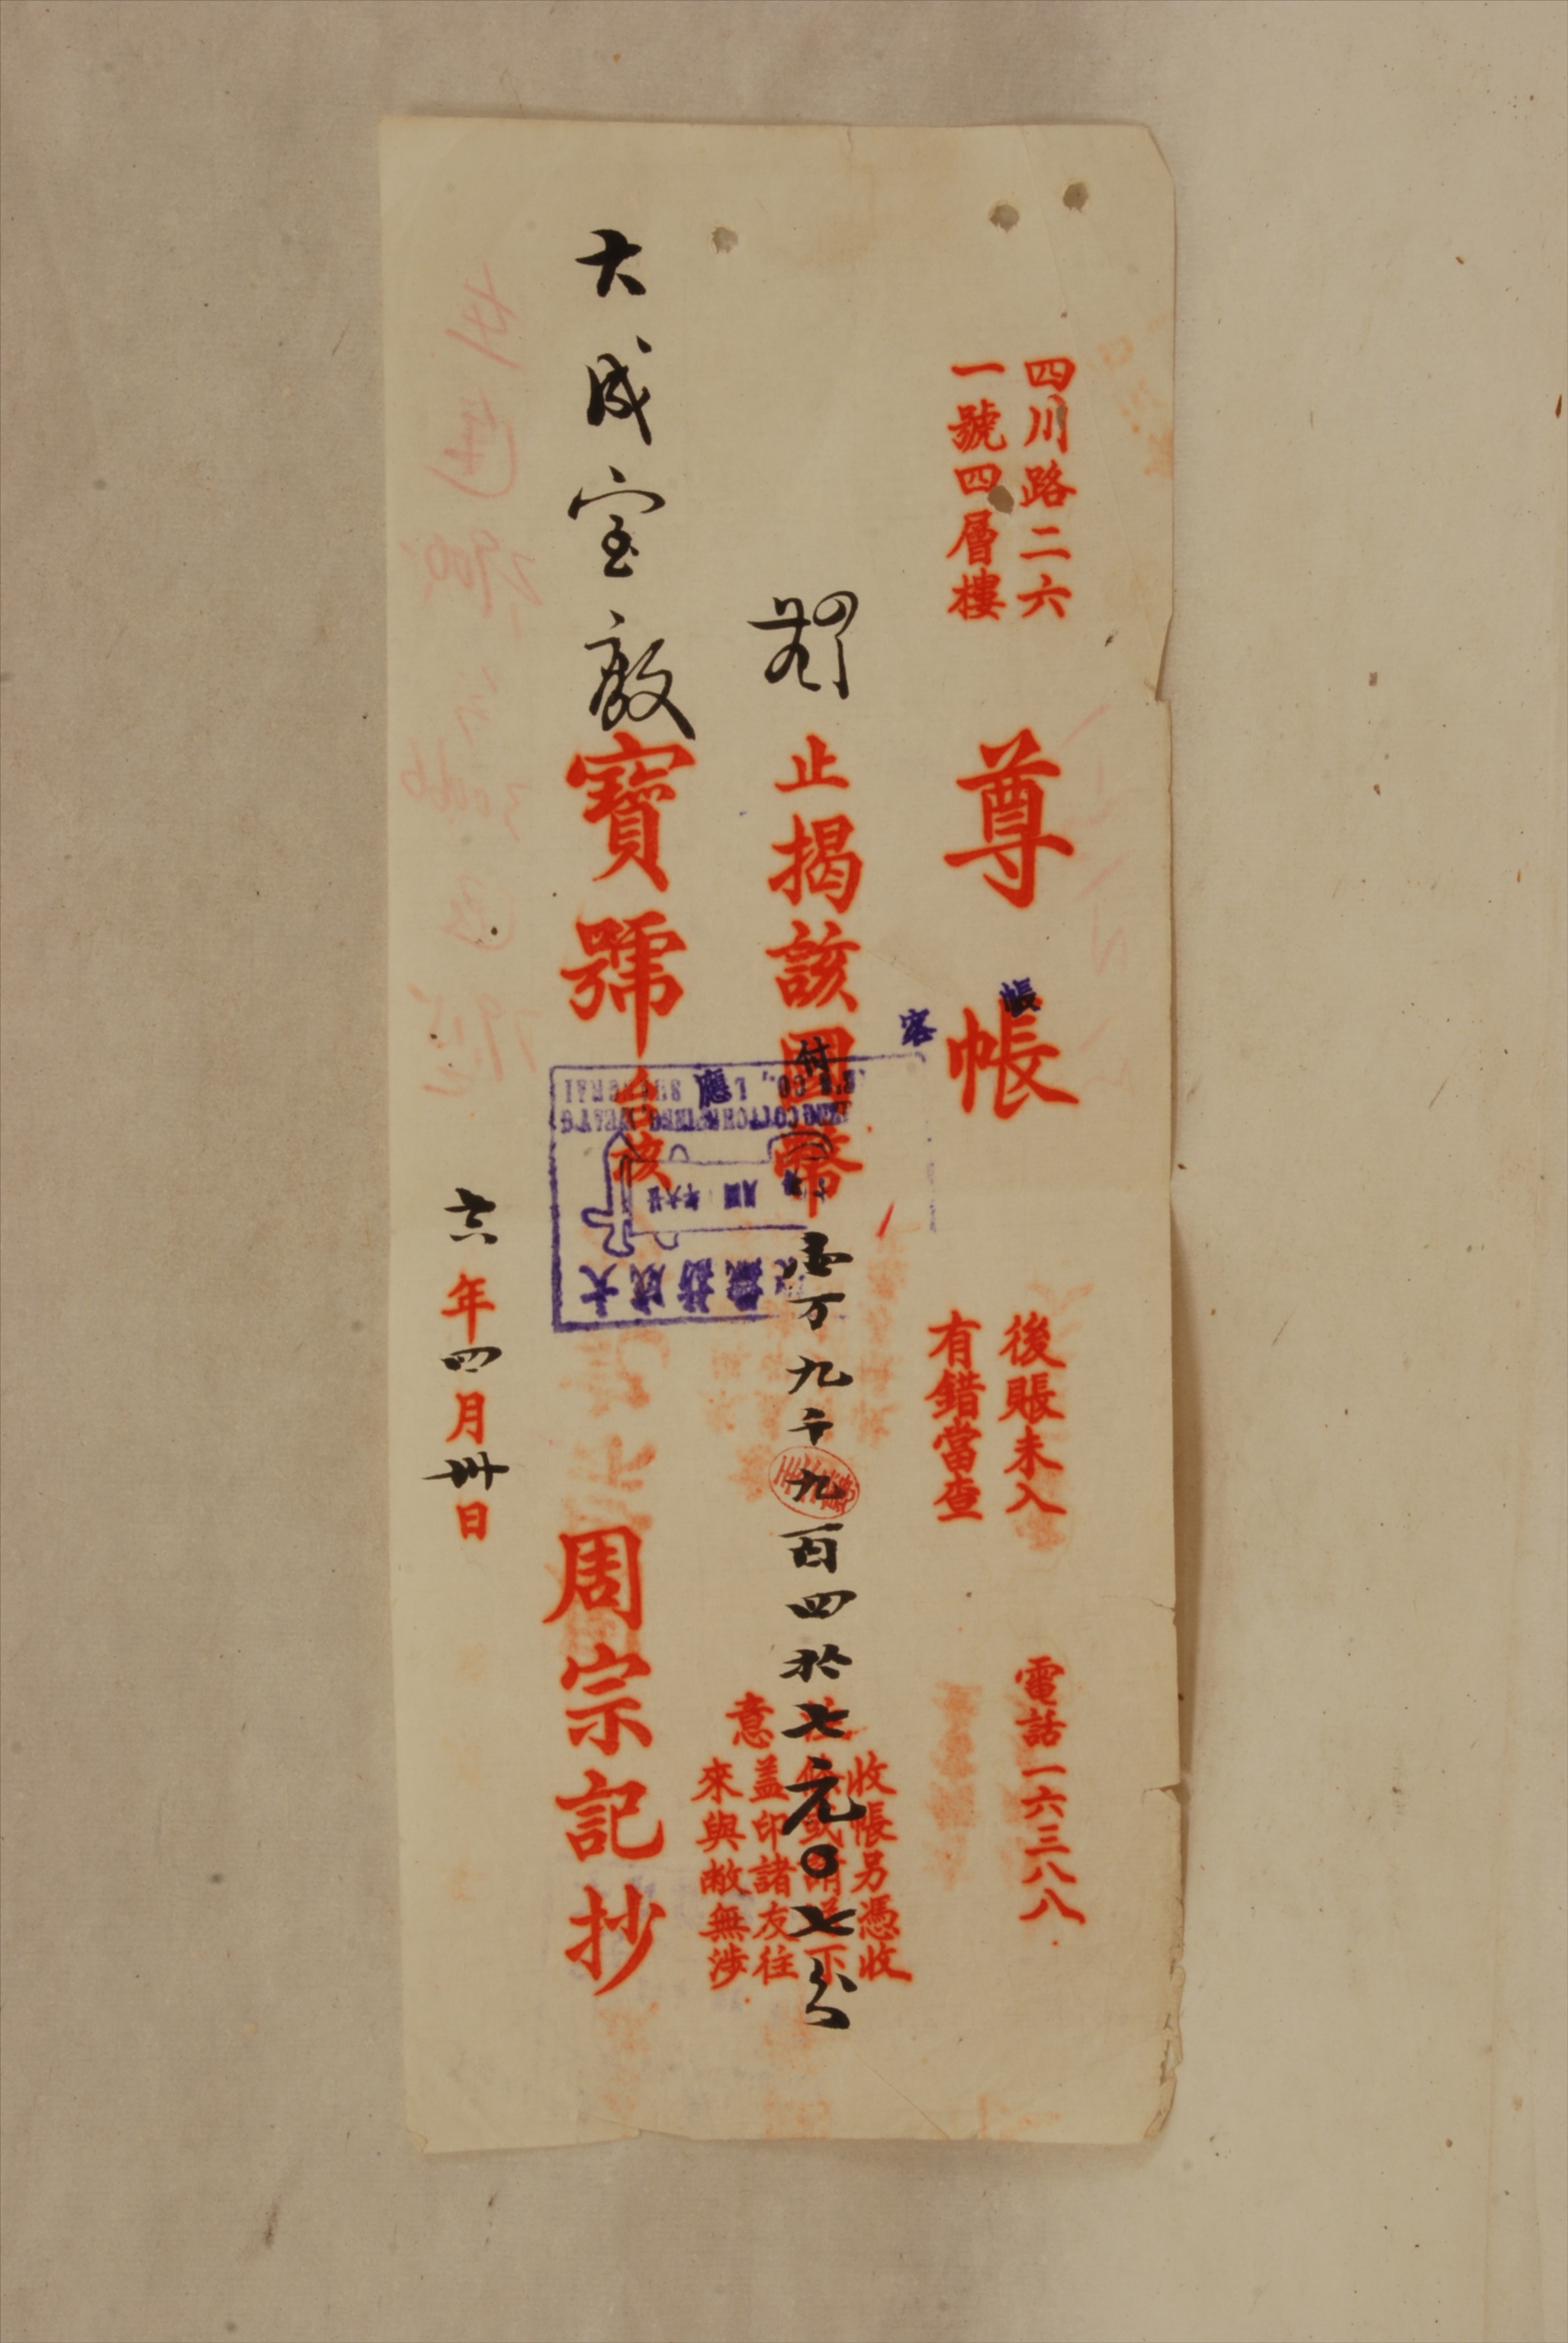 四川路二六
一號四層樓
尊帳
後賬未入
有錯當查
電話一六三八八
止揭該國幣壹万九千九百四拾七元〇七分
收帳另憑收
條或請
盖印諸友往
來與敝無涉
注意
大成宝廠寶號台核
周宗記抄
年四月卅日
客帳
付
SHANGHAI
大成紡織